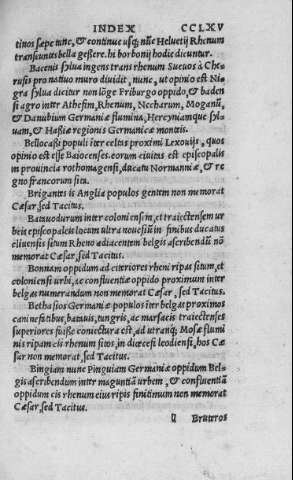 INDEX CCLXV
tinos sæpe tunc, & continue usq; nũc Heluetij Rhenum
transeuntes bella gessere. hi borbonij hodie dicuntur.
Bacenis sylua ingens trans rhenum Sueuos à Che
ruscis pro natiuo muro diuidit, nunc, ut opinio est Ni
gra sylua dicitur non lõge Friburgo oppido, & baden
si agro inter Athesim, Rhenum, Neccharum, Moganũ,
& Danubium Germaniæ flumina, Hercyniamque syl
uam, & Hassiæ regionis Germanicæ montes.
Bellocassi populi iter celtas proximi Lexouijs, quos
opinio est esse Baiocenses. eorum ciuitas est episcopalis
in prouincia rothomagensi, ducatu Normanniæ, & re
gno francorum sita.
Brigantes is Anglia populos gentem non memorat
Cæsar, sed Tacitus.
Batauodurum inter coloniensem, et traiectensem ur
beis episcopaleis locum ultra nouesiũ in finibus ducatus
cliuensis situm Rheno adiacentem belgis ascribendũ nõ
memorat Cæsar, sed Tacitus.
Bonnam oppidum ad citeriores rheni ripas situm, et
coloniensi urbi, ac confluentiæ oppido proximum inter
belgas numerandum non memorat Cæsar, sed Tacitus.
Bethasios Germaniæ populos iter belgas proximos
caninefatibus, batauis, tungris, ac marsacis traiectenses
superiores fuisse coniectura est, ad utranq; Mosæ flumi
nis ripam cis rhenum sitos, in diœcesi leodiensi, hos Cæ
sar non memorat, sed Tacitus.
Bingium nunc Pinguiam Germaniæ oppidum Bel-
gis ascribendum inter maguntiã urbem, & confluentiã
oppidum cis rhenum eius ripis finitimum non memorat
Cæsar, sed Tacitus.
Bructeros